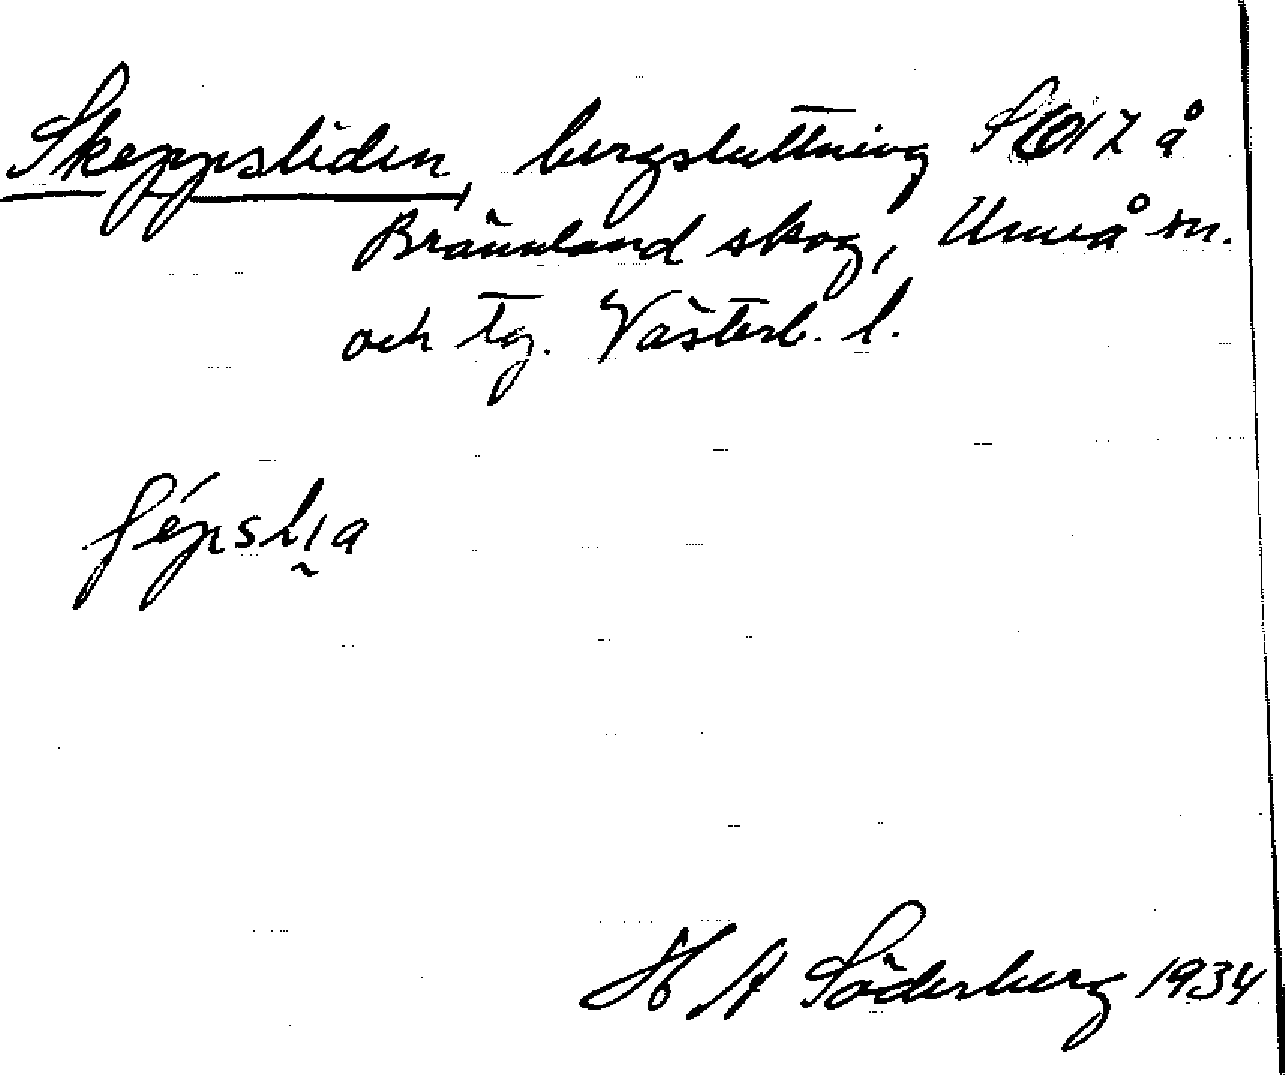 Skeppsliden, bergsluttning å
Brännland skog, Umeå sn.
och tg. Västerb. l.
H A Söderberg 1934